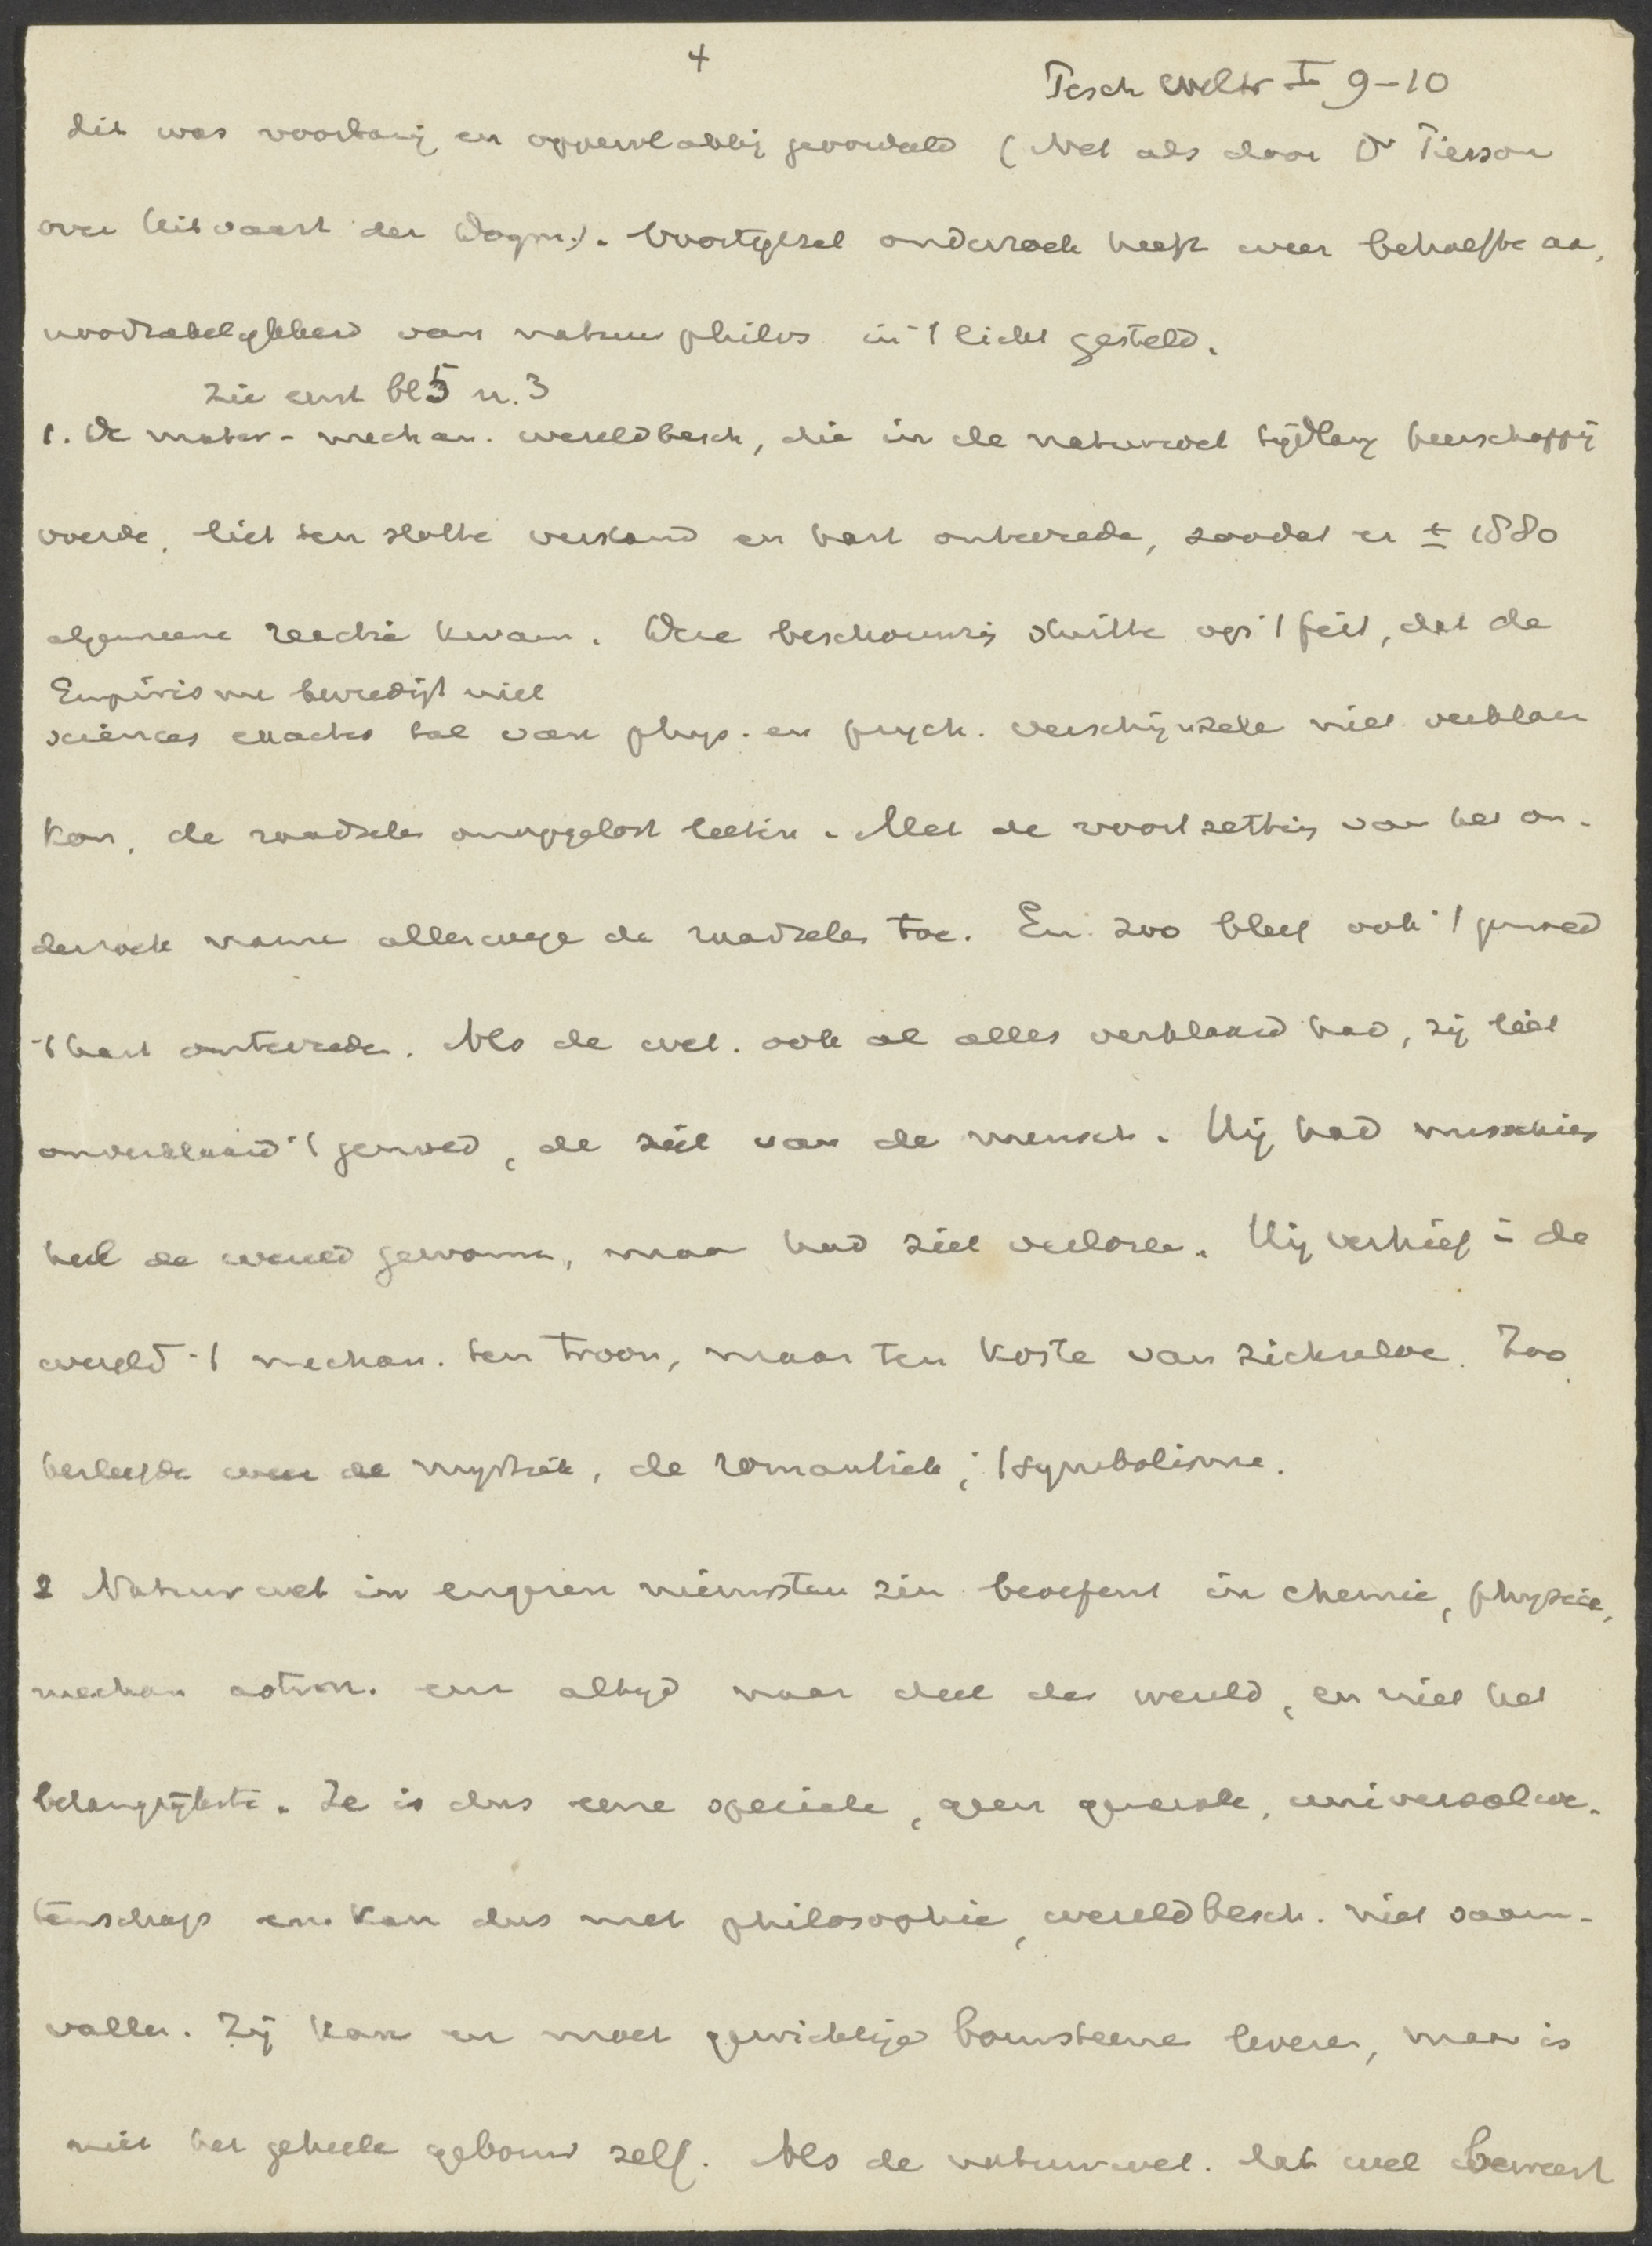 4
Pesch Weltr I 9-10
dit was voorbarig en oppervlakkig geoordeeld (Net als door Dr Pierson
over Uitvaart der Dogm.). Voortgezet onderzoek heeft weer behoefte aa,
noodzakelijkheid van natuurphilos in 't licht gesteld.
Zie eerst bl 5 n. 3
1. De mater-mechan. wereldbesch, die in de natuurwet tijdlang heerschappij
voerde, liet ten slotte verstand en hart onbevrede, zoodat er ± 1880
algemeene reactie kwam. Deze beschouwing stuitte op 't feit, dat de
Empirisme bevredigt niet
sciences exactes tal van phys. en psych. verschijnsele niet verklare
kon, de raadsels onopgelost liet. Met de voortzetting van het on-
derzoek name allerwege de raadsele toe. En zoo bleef ook 't gemoed
't hart onbevrede. Als de wet. ook al alles verklaard had, zij liet
onverklaard 't gemoed, de ziel van de mensch. Hij had misschien
heel de wereld gewonne, maar had ziel verlore. Hij verhief i de
wereld 't mechan. ten troon, maar ten koste van zichzelve. Zoo
herleefde weer de mystiek, de romantiek, 't symbolisme.
2 Natuurwet in engeren nieuwsten zin beoefent in chemie, physica,
mechan astron. een altijd maar deel der wereld, en niet het
belangrijkste. Ze is dus eene speciale, geen generale, universale we-
tenschap en kan dus met philosophie, wereldbesch. niet saam-
valle. Zij kan en moet gewichtige bouwsteene levere, maar is
niet het geheele gebouw zelf. Als de natuurwet. dat wel beweert